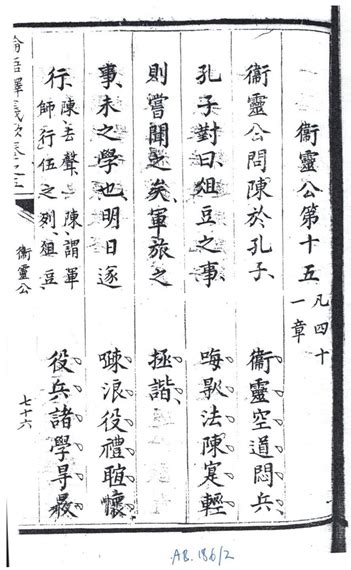 衞靈公第十五
凡四十
一章
衞靈公問陳於孔子、
孔子對曰、俎豆之事、
則嘗聞之矣、軍旅之
事、未之學也、明日遂
行、
陳去聲〇陳謂軍
師行伍之列俎豆、
衞靈空道悶兵、
法陳寔輕
拯諧
浪役禮誼懷
役兵諸學尋
論語釋義歌卷之五
衞靈公
七十六
AB.186/2